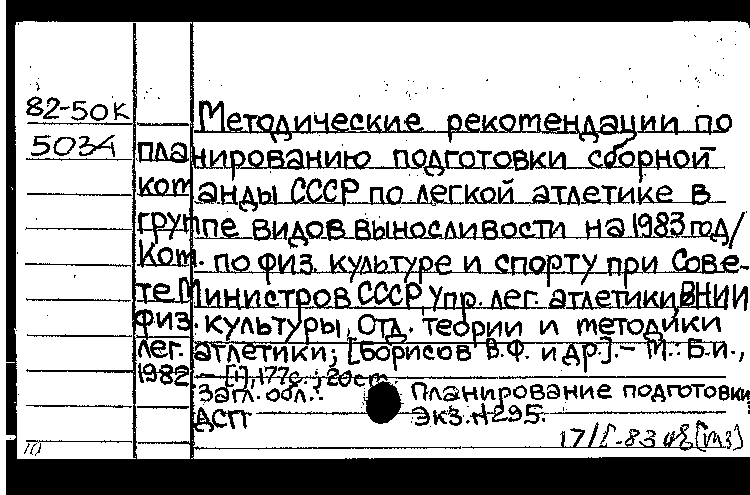 82-50К
503А
Методические рекомендации по
планированию подготовки сборной
команды СССР по легкой атлетике в
группе видов выносливости на 1983 год/
Ком. по физ. культуре и спорту при Сове-
те Министров СССР Упр. лег. атлетики, ВНИИ
физ. культуры, Отд. теории и методики
лег. атлетики; [Борисов В.Ф. и др.]. - М.: Б.и.,
1982 - [1], 177с.; 20см.
Загл. обл.: Планирование подготовки
ДСП Экз. н295.
17/I-83
10